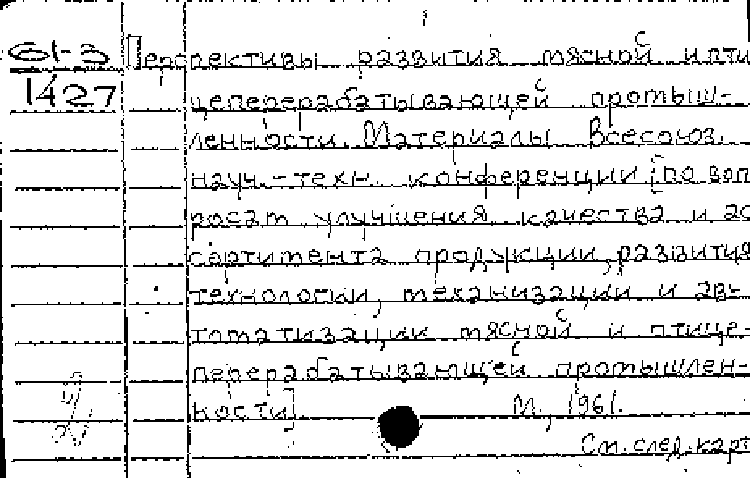 61-3 Перспективы развития мясной и пти
1427 цеперерабатывающей промыш-
ленности. Материалы Всесоюз.
науч.-техн. конференции [по воп
росам улучшения качества и ас
сортимента продукции, развития
технологии, механизации и ав-
томатизации мясной и птице-
перерабатывающей промышлен-
ности]. М., 1961.
См. след. карт